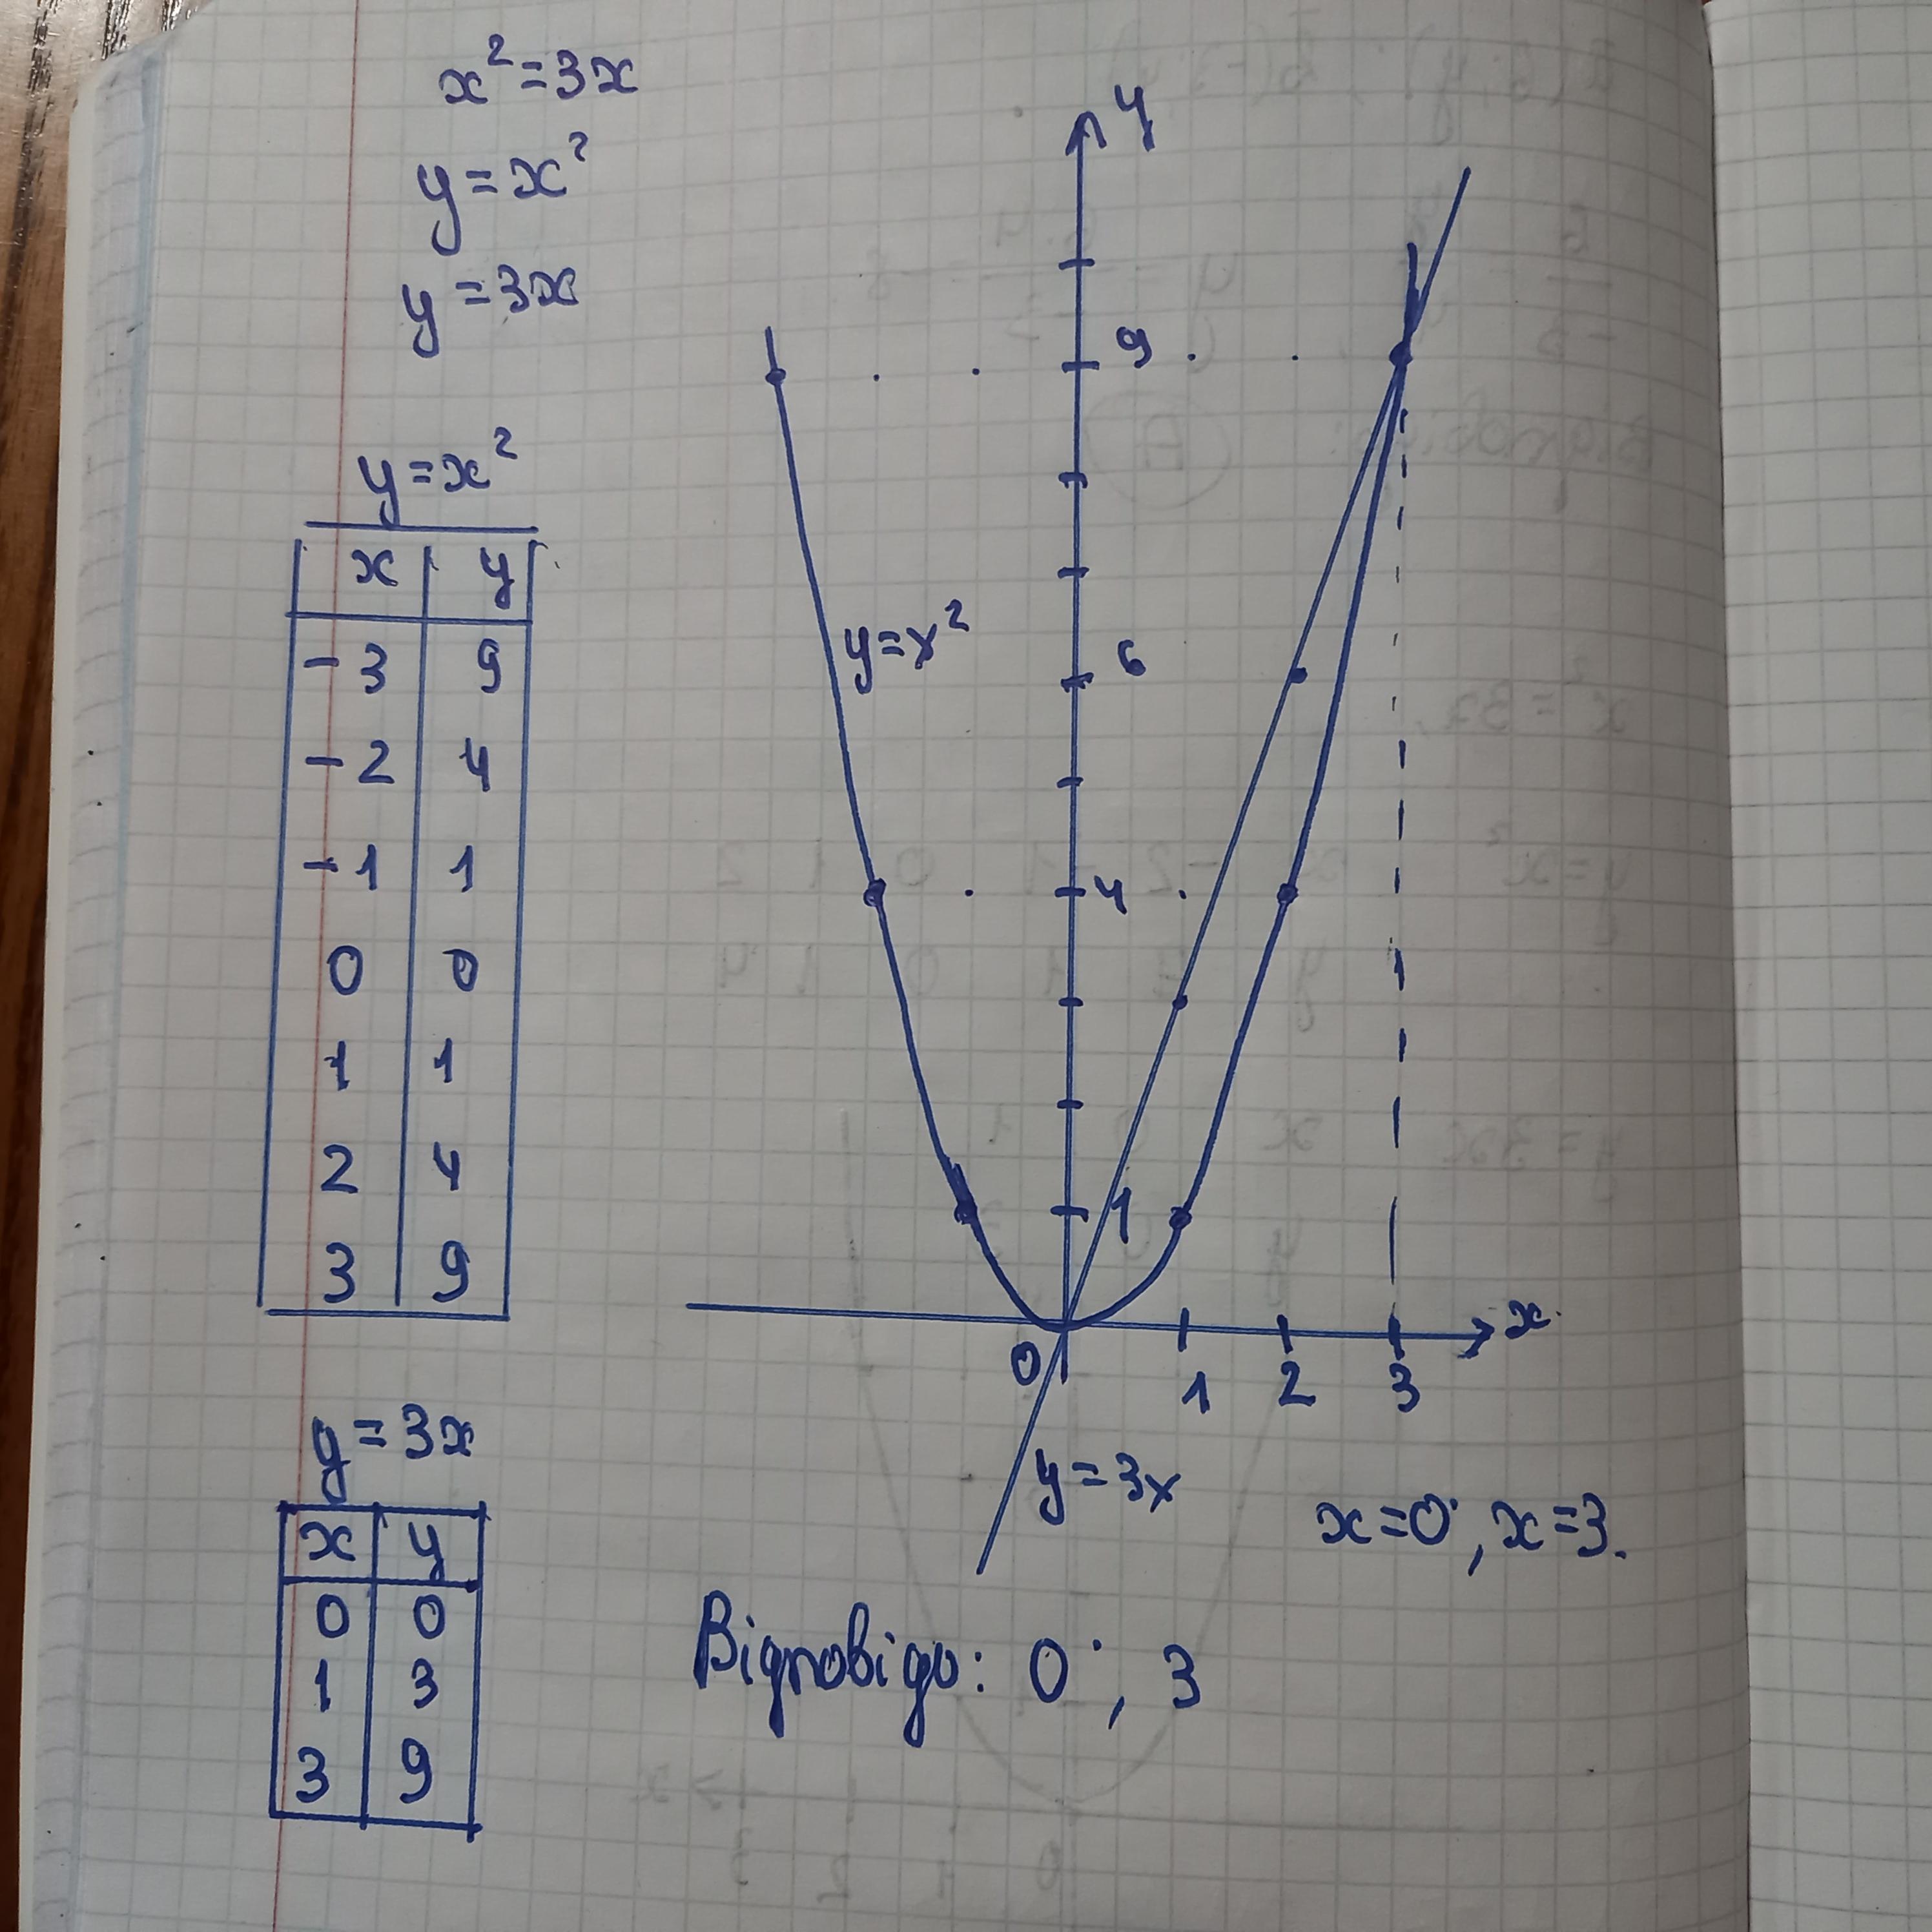 x² = 3x
y = x²
y = 3x
y = x²
x y
-3 9
-2 4
-1 1
0 0
1 1
2 4
3 9
y = 3x
x y
0 0
1 3
3 9
y
9
y = x²
6
4
1
x
0 1 2 3
y = 3x
x = 0; x = 3.
Відповідь: 0; 3